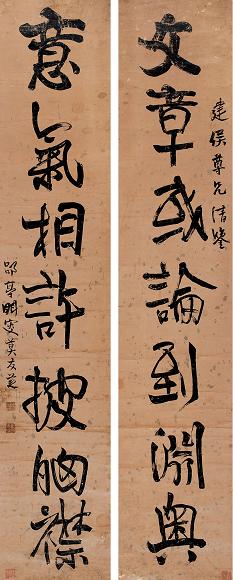 建侯尊兄清鑒
文章或論到淵奧
意氣相許披胸襟
邵亭眲叟莫友芝